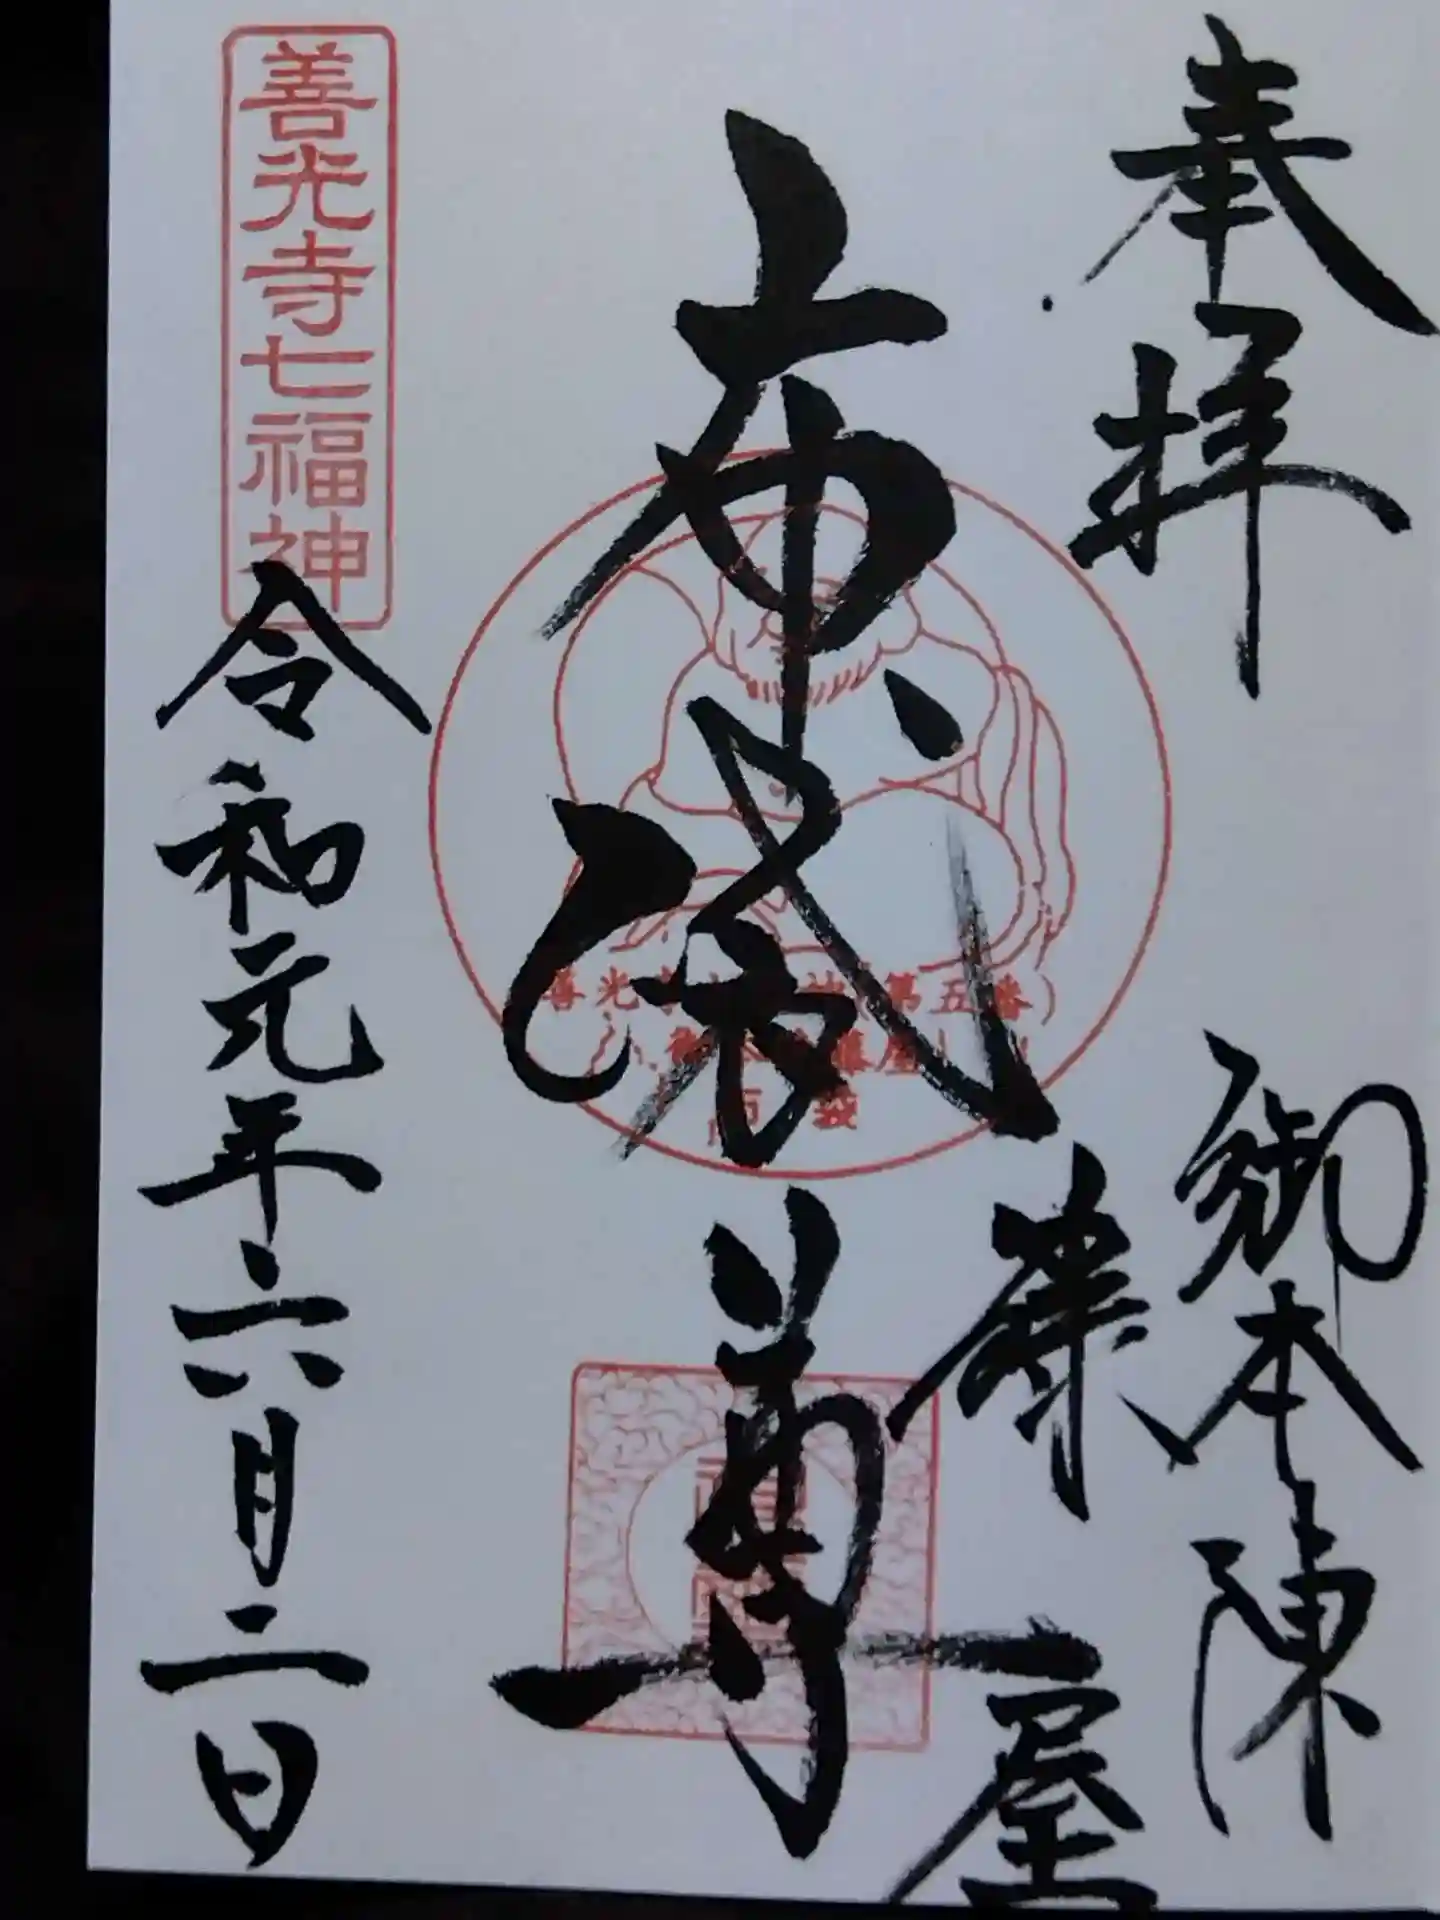 奉拝
御本陳
藤屋
布袋尊
善光寺七福神
令和元年六月二日
善光寺七福神(第五番)
御本陳藤屋
布袋